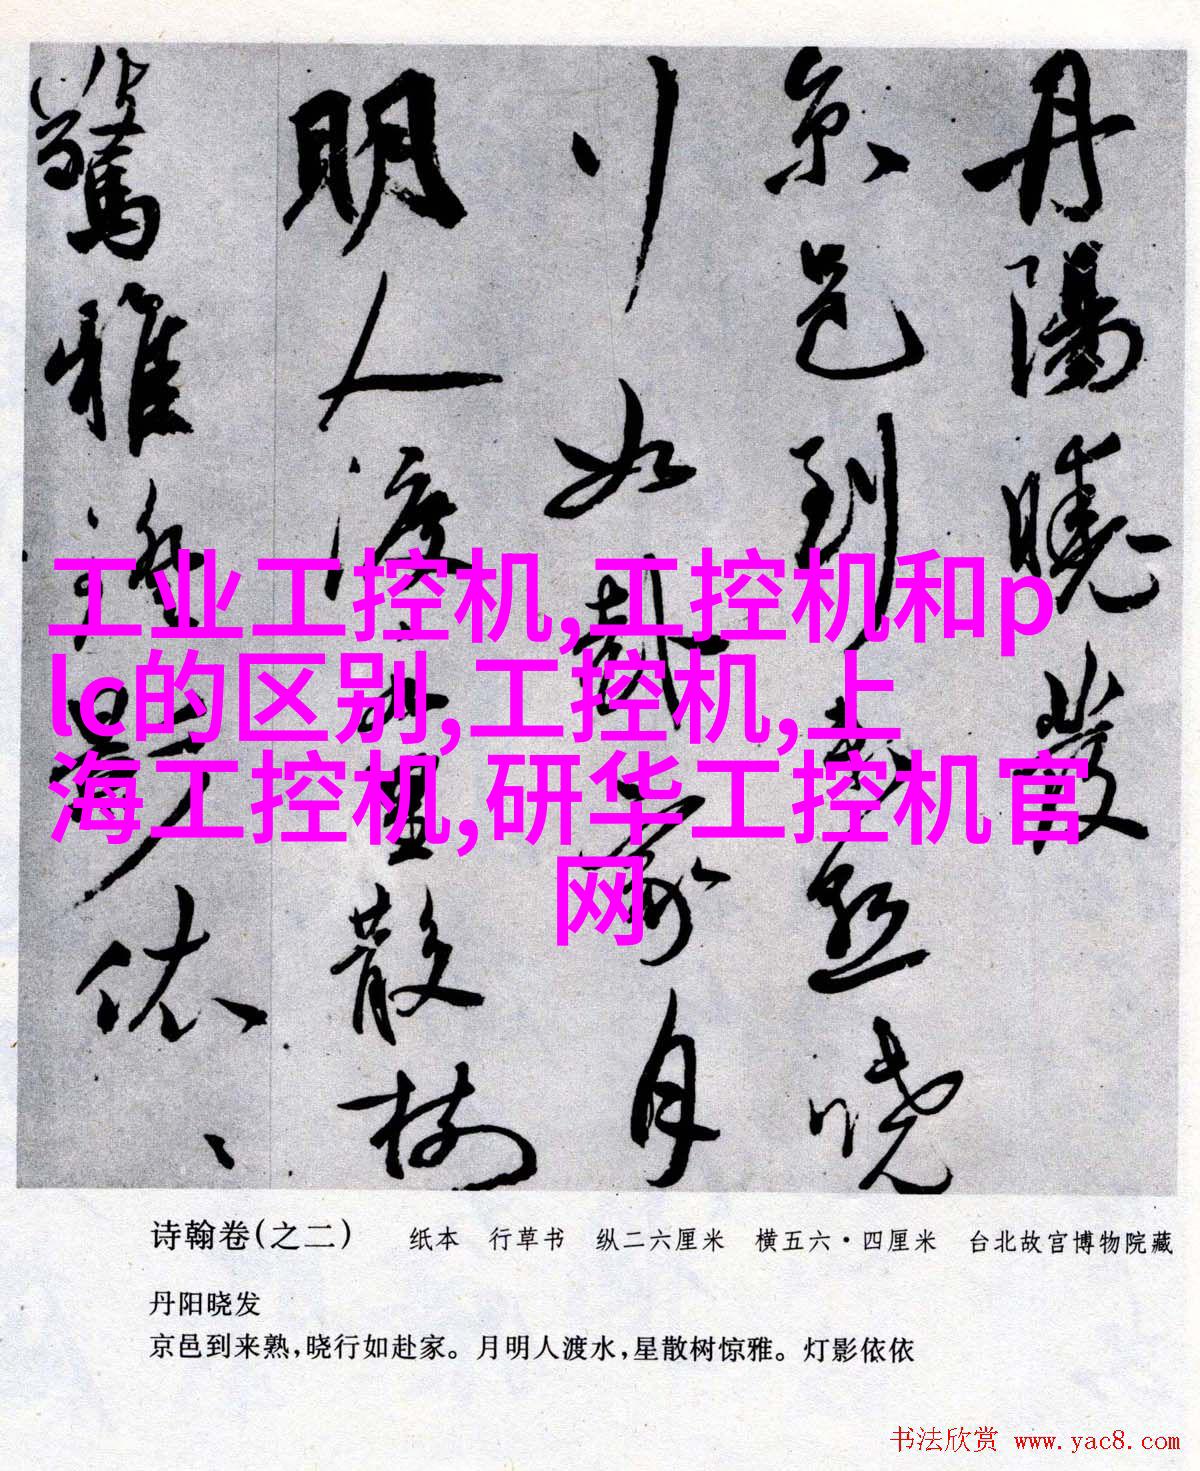 丹陽曉發
京邑到來熟曉
行如赴家月
明人渡水星散樹
驚雅燈影依依
工业工控机,工控机和p
lc的区别,工控机,上
海工控机,研华工控机官
网
诗翰卷(之二) 纸本 行草书 纵二六厘米 横五六·四厘米 台北故宫博物院藏
丹阳晓发
京邑到来熟,晓行如赴家。月明人渡水,星散树惊雅。灯影依依
书法欣赏 www.yac8.com